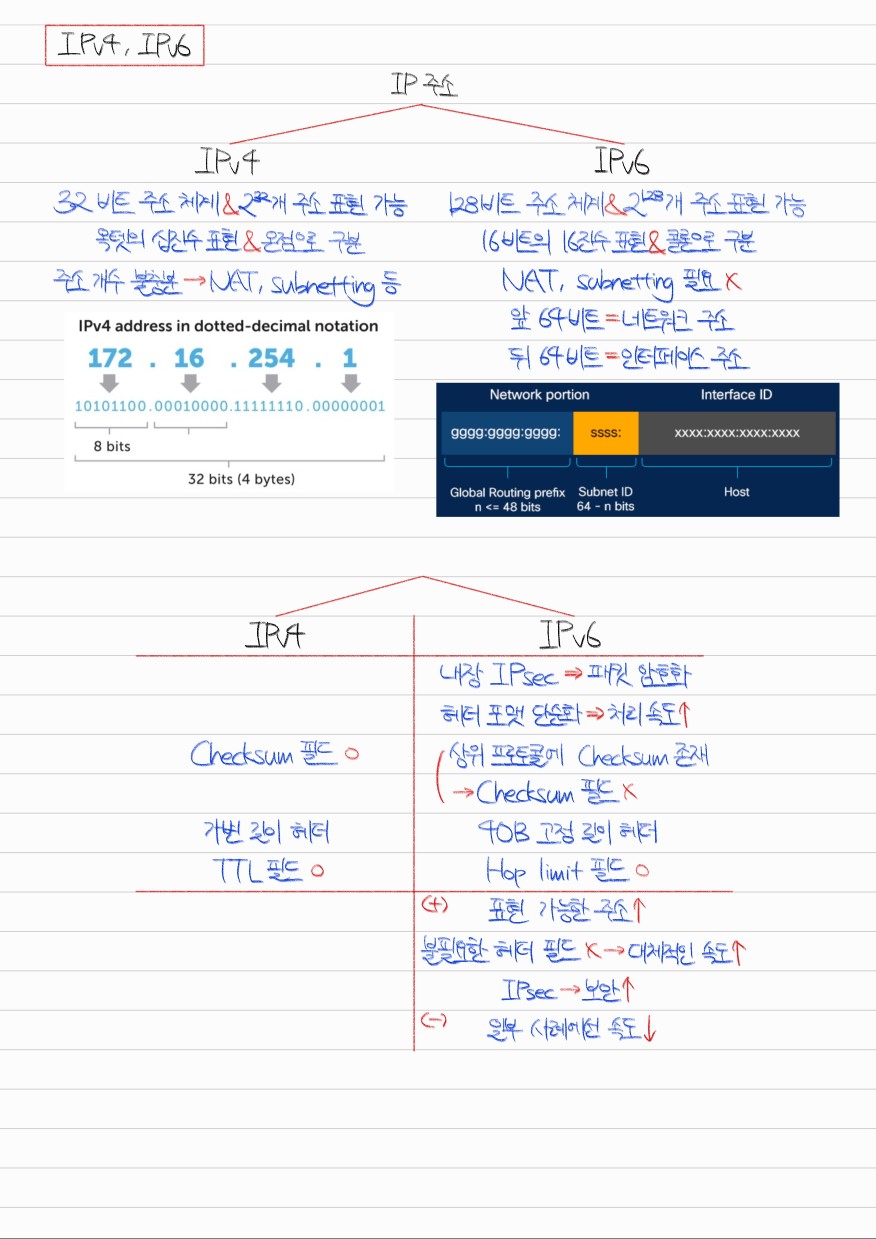 IPv4, IPv6
IP 주소
IPv4
32 비트 주소 체계 & 2³²개 주소 표현 가능
옥텟의 십진수 표현 & 온점으로 구분
주소 개수 불충분 → NAT, subnetting 등
IPv4 address in dotted-decimal notation
172 . 16 . 254 . 1
10101100.00010000.11111110.00000001
8 bits
32 bits (4 bytes)
IPv6
128비트 주소 체계 & 2¹²⁸개 주소 표현 가능
16비트의 16진수 표현 & 콜론으로 구분
NAT, subnetting 필요 X
앞 64비트 = 네트워크 주소
뒤 64비트 = 인터페이스 주소
Network portion
Interface ID
gggg:gggg:gggg:
ssss:
xxxx:xxxx:xxxx:xxxx
Global Routing prefix
n <= 48 bits
Subnet ID
64 - n bits
Host
IPv4
IPv6
내장 IPsec ⇒ 패킷 암호화
헤더 포맷 단순화 ⇒ 처리 속도↑
Checksum 필드 O
상위 프로토콜에 Checksum 존재
→ Checksum 필드 X
가변 길이 헤더
40B 고정 길이 헤더
TTL 필드 O
Hop limit 필드 O
(+) 표현 가능한 주소↑
불필요한 헤더 필드 X → 대체적인 속도↑
IPsec → 보안↑
(-) 일부 사례에선 속도↓